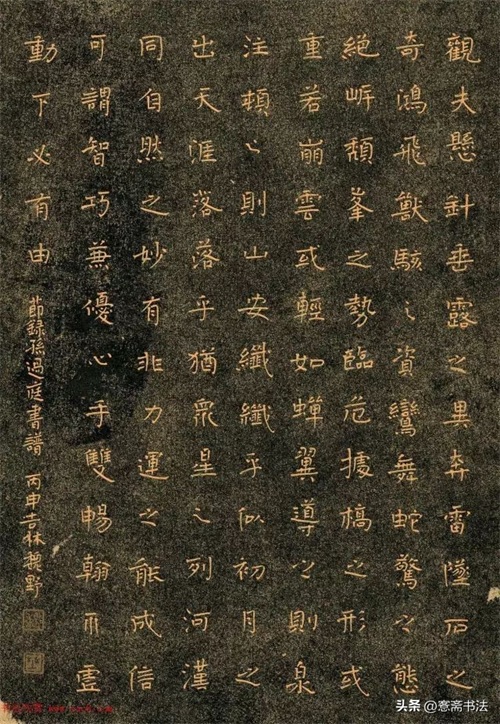 觀夫懸針垂露之異奔雷墜石之
奇鴻飛獸駭之資鸞舞蛇驚之態
絕岸頹峯之勢臨危據槁之形或
重若崩雲或輕如蟬翼導之則泉
注頓之則山安纖纖乎似初月之
出天涯落落乎猶眾星之列河漢
同自然之妙有非力運之能成信
可謂智巧兼優心手雙暢翰不虛
動下必有由 節錄孫過庭書譜 丙申吉林魏野
头条 @憙斋书法